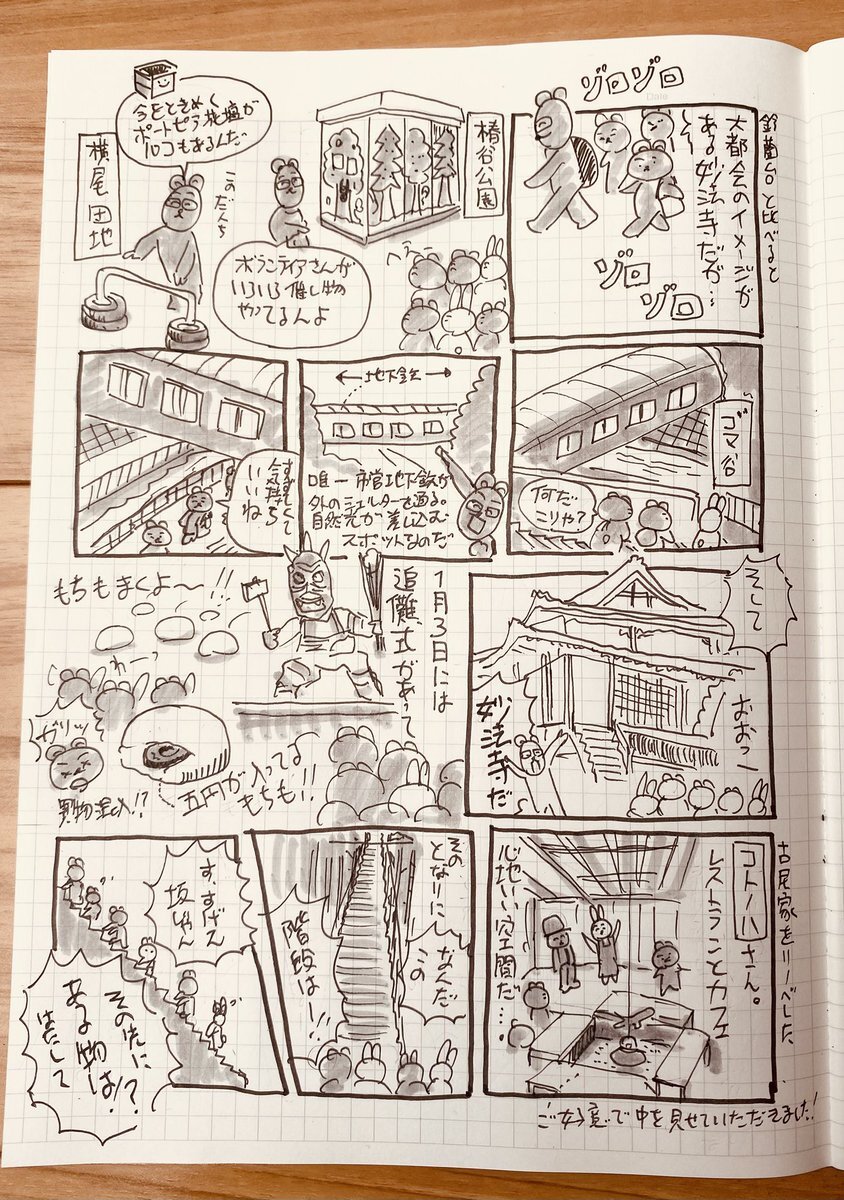 鈴蘭台と比べると
大都会のイメージが
ある妙法寺だが…
ゾロゾロ
ゾロ
ゾロ
椿谷公園
ボランティアさんが
いろいろ催し物
やってるんよ
へえー
横尾団地
このだんち
今をときめく
ポートピア花壇が
ルコもあるんだ
Date
ゴマ谷
何だ
こりゃ?
←地下鉄→
唯一市営地下鉄が
外のシェルターを通る。
自然光が差し込む
スポットなのだ
すずしくて
気持ち
いいね
そして
おおっ
妙法寺だ
1月3日には
追儺式があって
もちもまくよ〜!!
わーっ
五円が入ってる
もちも!!
ガリッ
異物混入!?
古民家をリノベした
コトノハさん。
レストランとカフェ
心地いい空間だ…
ご好意で中を見せていただきました!
その
となりに
なんだ
この
階段はー!!
す、すげえ
坂じゃん
その先に
ある物は!?
はたして